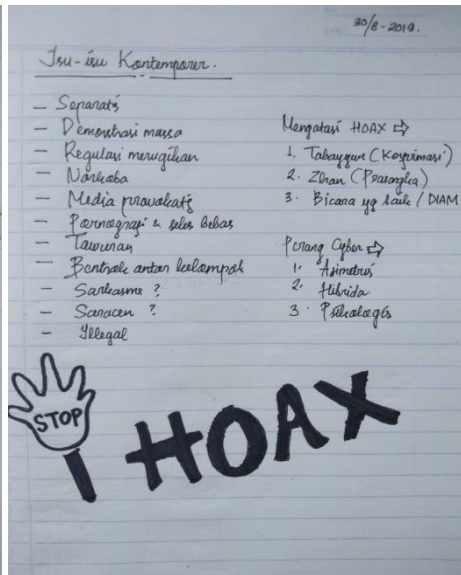 30/8-2019.
Isu-isu Kontemporer.
- Separatis
- Demonstrasi massa
- Regulasi merugikan
- Narkoba
- Media provokatif
- Pornografi & seks bebas
- Tawuran
- Bentrok antar kelompok
- Sarkasme ?
- Saracen ?
- Illegal
Mengatasi HOAX ⇨
1. Tabayyun (Konfirmasi)
2. Zhan (Prasangka)
3. Bicara yg baik / DIAM
Perang Cyber ⇨
1. Asimetris
2. Hibrida
3. Psikologis
STOP
HOAX